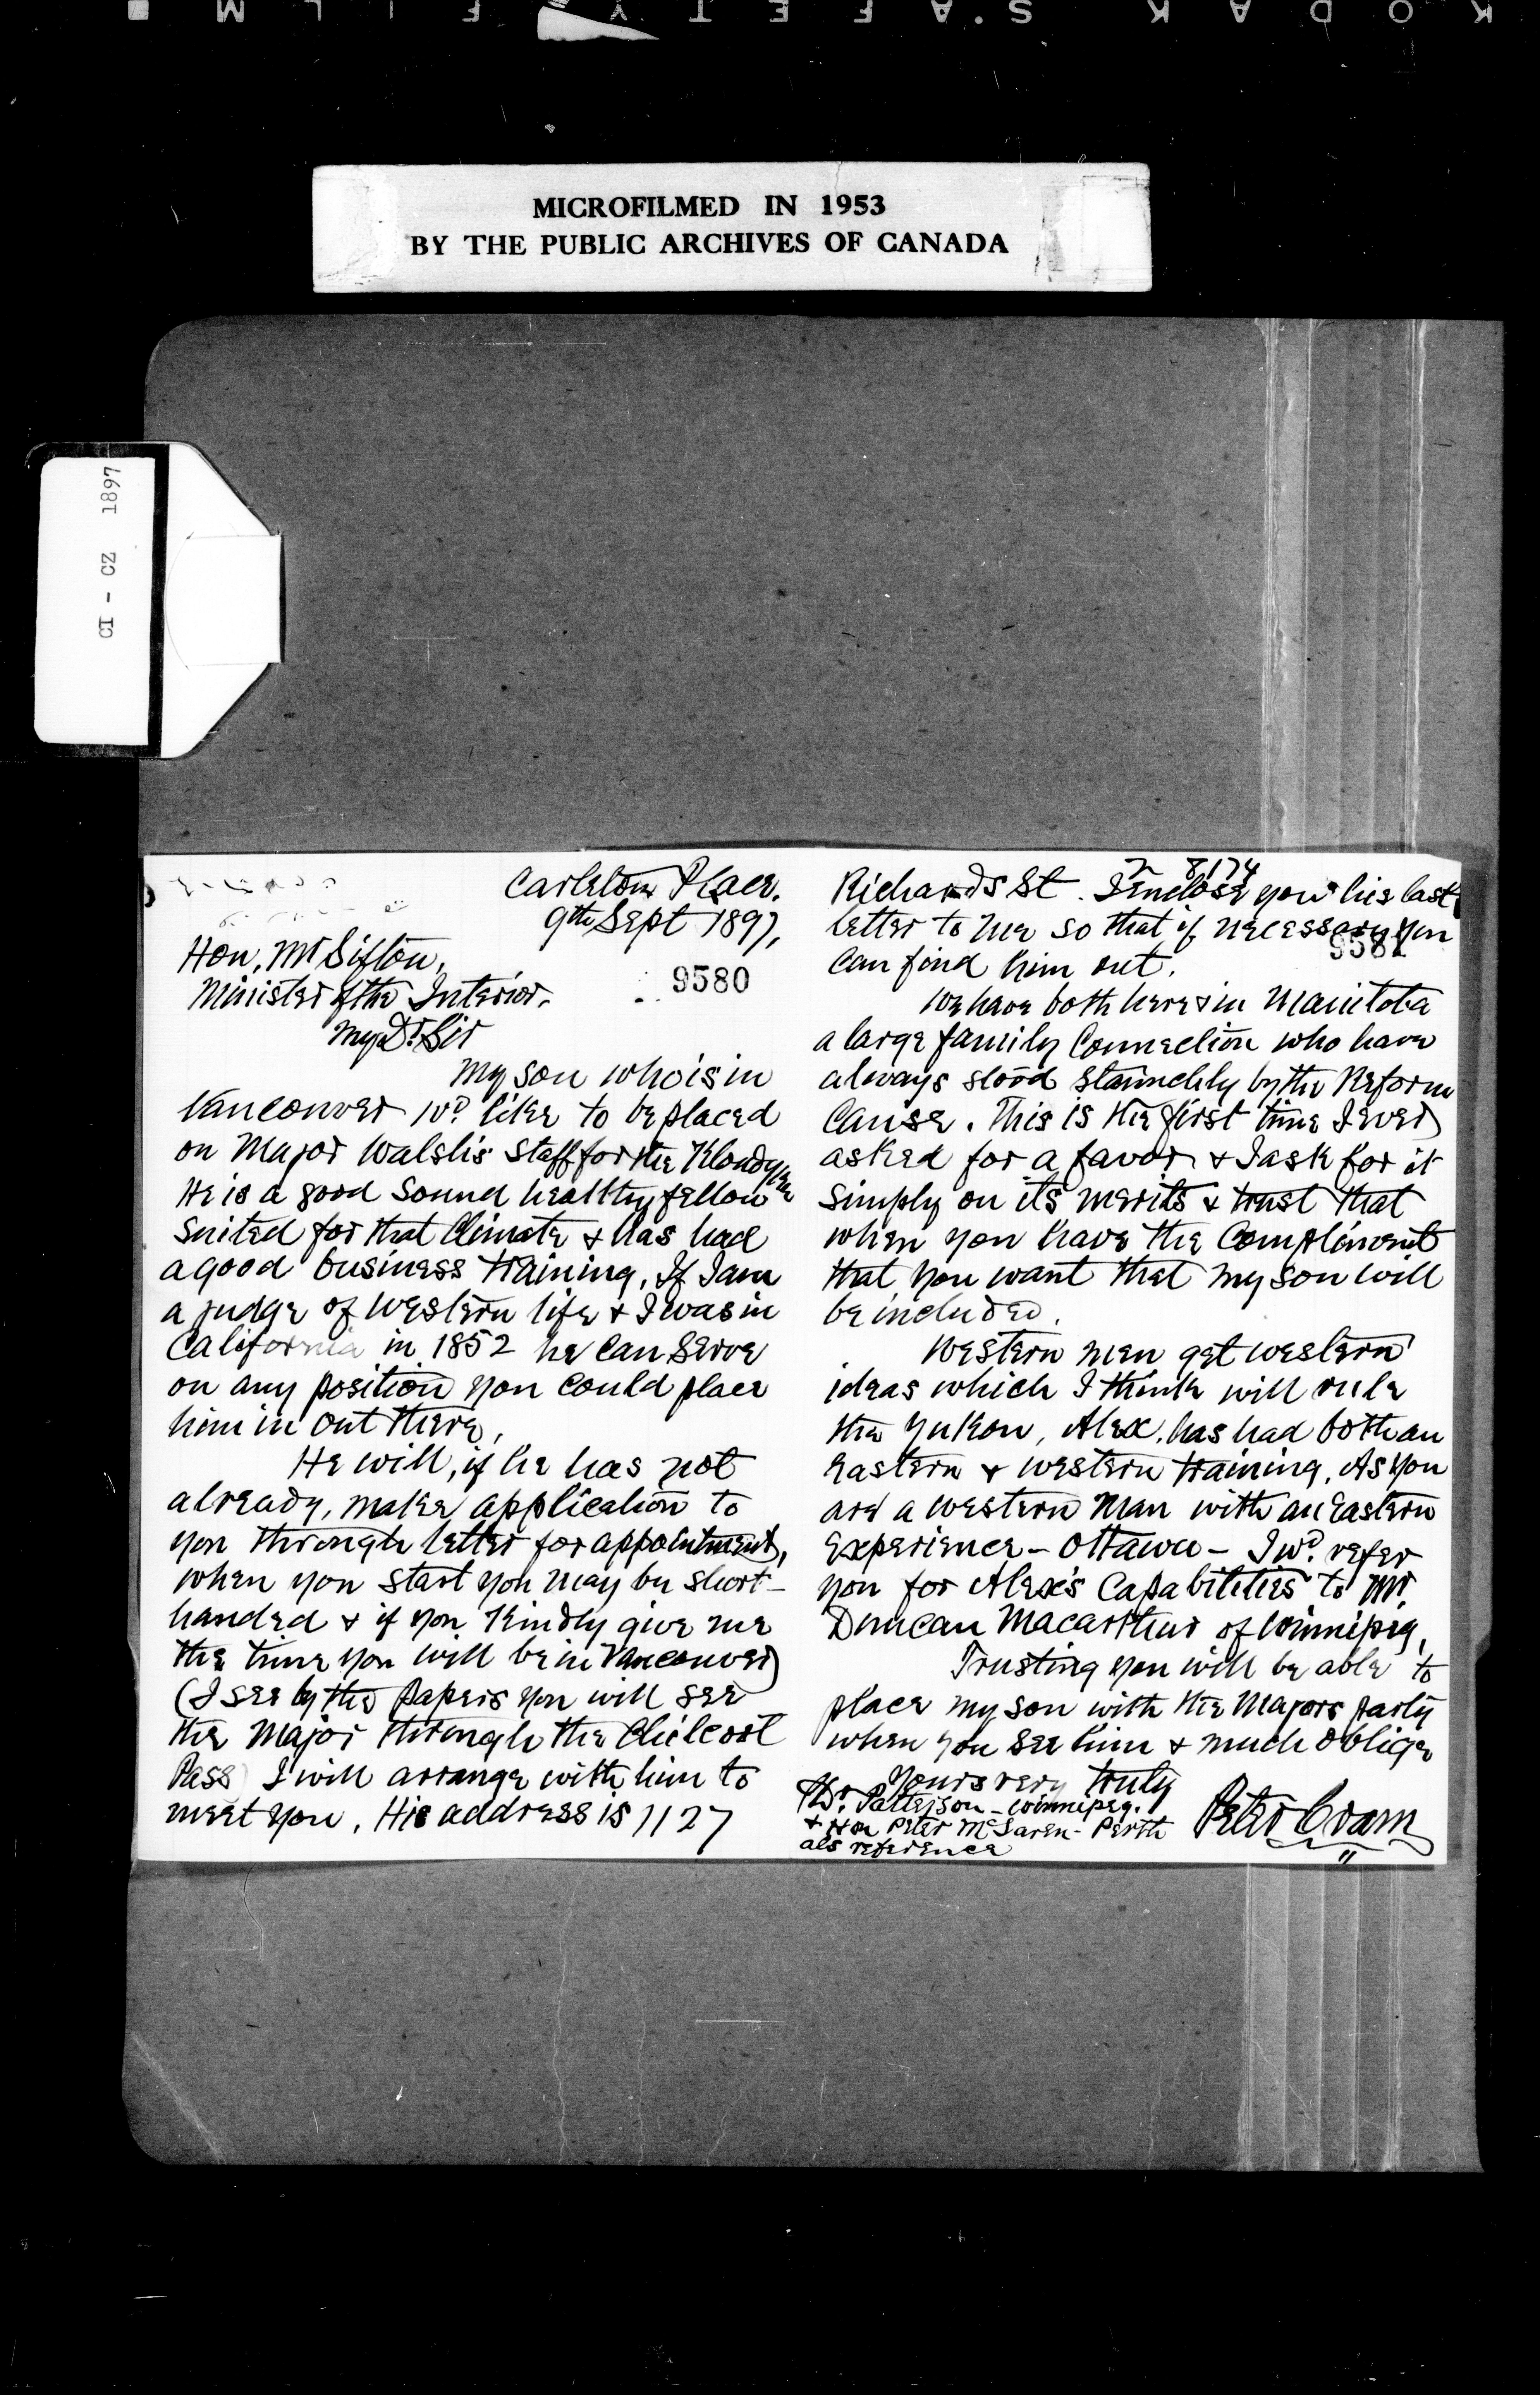 KODAK SAFETY FILM
MICROFILMED IN 1953
BY THE PUBLIC ARCHIVES OF CANADA
CI - CZ 1897
Carleton Place.
9th Sept 1897,
9580
Hon. Mr Sifton,
Minister of the Interior.
My Dr Sir
My son who is in
Vancouver wd like to be placed
on Major Walsh's staff for the Klondyke
He is a good sound healthy fellow
suited for that climate & has had
a good business training. If I am
a judge of western life & I was in
California in 1852 he can serve
on any position you could place
him in out there.
He will, if he has not
already, make application to
you through letter for appointment,
when you start you may be short-
handed & if you kindly give me
the time you will be in Vancouver
(I see by the papers you will see
the Major through the Chilcoot
Pass) I will arrange with him to
meet you. His address is 1127
2 8174
Richards St. I enclose you his last
letter to me so that if necessary you
can find him out.
We have both here & in Manitoba
a large family connection who have
always stood staunchly by the Reform
Cause. This is the first time I ever
asked for a favor & I ask for it
simply on its merits & trust that
when you have the compliment
that you want that my son will
be included.
Western men get western
ideas which I think will rule
the Yukon, Alex. has had both an
Eastern & western training. As you
are a western man with an Eastern
experience - Ottawa - I wd. refer
you for Alex's capabilities to Mr.
Duncan Macarthur of Winnipeg,
Trusting you will be able to
place my son with the Majors party
when you see him & much oblige
Yours very truly
Peter Cram
Dr. Patterson - Winnipeg.
& Hon Peter McLaren - Perth
als reference